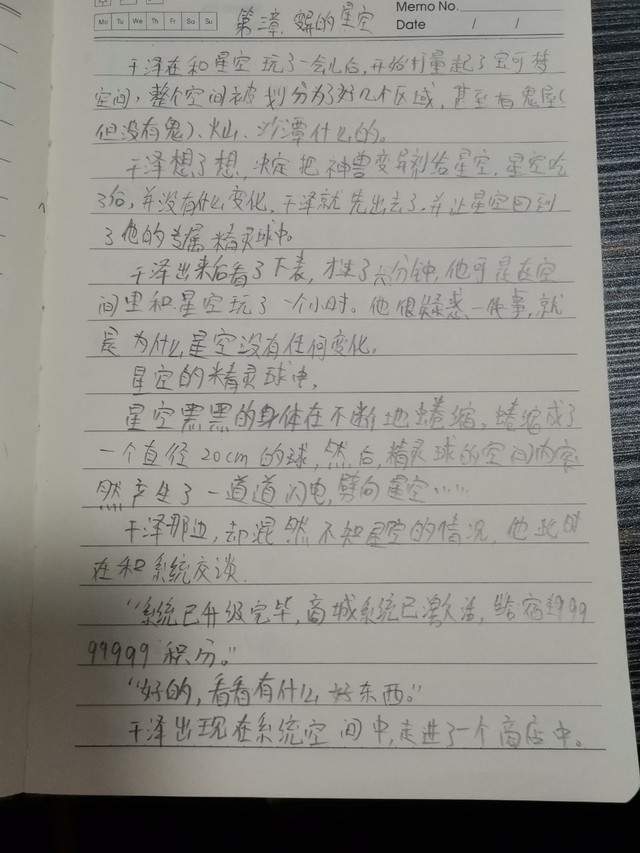 Memo No.
Mo Tu We Th Fr Sa Su
Date / /
第三章 变异的星空
于泽在和星空玩了一会儿后,开始打量起了宝可梦
空间,整个空间被划分为了好几个区域,甚至有鬼屋(
但没有鬼)、火山、沙潭什么的。
于泽想了想,决定把神兽变异剂给星空,星空吃
了后,并没有什么变化,于泽就先出去了,并让星空回到
了他的专属精灵球中。
于泽出来后看了下表,才过了六分钟,他可是在空
间里和星空玩了一个小时。他很疑惑一件事,就
是为什么星空没有任何变化。
星空的精灵球中,
星空黑黑的身体在不断地蜷缩,蜷缩成了
一个直径20cm的球,然后,精灵球的空间内突
然产生了一道道闪电,劈向星空……
于泽那边,却浑然不知星空的情况,他此时
在和系统交谈.
“系统已升级完毕,商城系统已激活,给宿主999
99999积分。”
“好的,看看有什么好东西。”
于泽出现在系统空间中,走进了一个商店中。